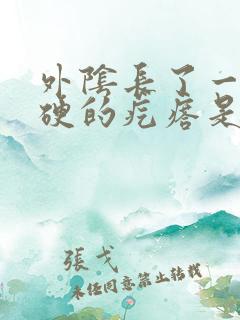 外陰長了一
硬的疙瘩是
張戈
未经同意禁止转载